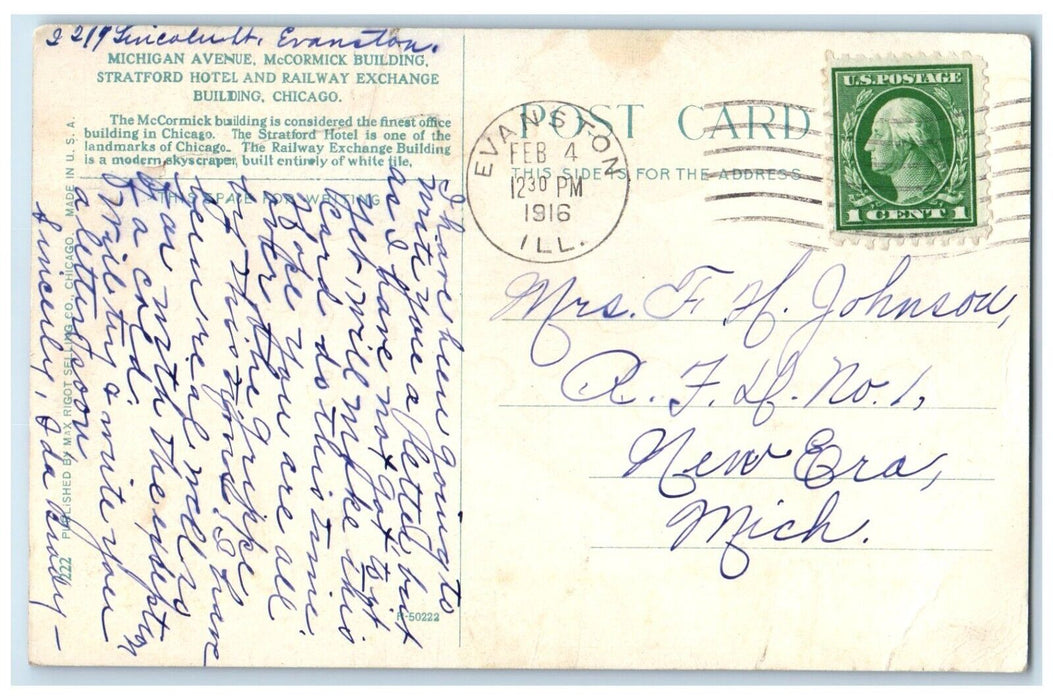 2219 Lincoln St. Evanston.
MICHIGAN AVENUE, McCORMICK BUILDING,
STRATFORD HOTEL AND RAILWAY EXCHANGE
BUILDING, CHICAGO.
The McCormick building is considered the finest office
building in Chicago. The Stratford Hotel is one of the
landmarks of Chicago. The Railway Exchange Building
is a modern skyscraper, built entirely of white tile.
THIS SPACE FOR WRITING
I have been going to
write you a letter, but
as I have not got to it
yet, will make this
card do this time.
Hope you are all
over the grippe
by this time. I have
been real well so
far with the exception
of a cold.
Will try & write you
a letter soon
Sincerely, Ida
222 PUBLISHED BY MAX RIGOT SELLING CO., CHICAGO MADE IN U. S. A.
R-50222
POST CARD
THIS SIDE IS FOR THE ADDRESS
EVANSTON
FEB 4
12 30 PM
1916
ILL.
U.S. POSTAGE
1 CENT 1
Mrs. F. H. Johnson,
R. F. D. No. 1,
New Era,
Mich.